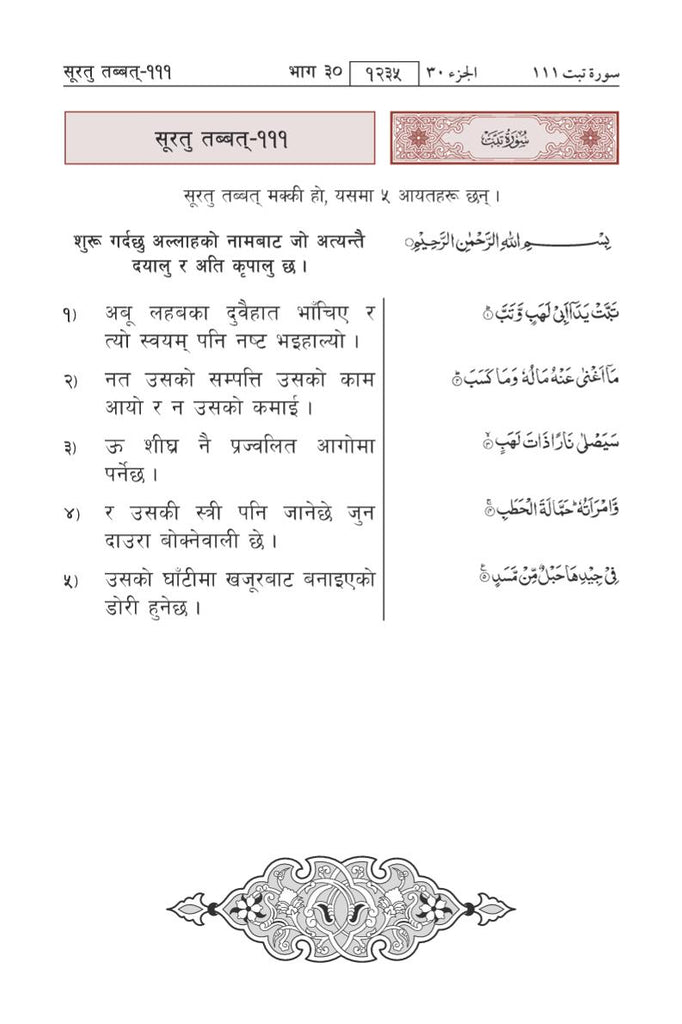 सूरतु तब्बत्-१११ भाग ३० १२३५ الجزء ٣٠ سورة تبت ١١١
सूरतु तब्बत्-१११
سُوْرَةُ تَبَّتْ
सूरतु तब्बत् मक्की हो, यसमा ५ आयतहरू छन् ।
शुरू गर्दछु अल्लाहको नामबाट जो अत्यन्तै
दयालु र अति कृपालु छ ।
بِسْمِ اللهِ الرَّحْمٰنِ الرَّحِيْمِ
१) अबू लहबका दुवैहात भाँचिए र
त्यो स्वयम् पनि नष्ट भइहाल्यो ।
تَبَّتْ يَدَآ اَبِىْ لَهَبٍ وَّتَبَّ ۝١
२) नत उसको सम्पत्ति उसको काम
आयो र न उसको कमाई ।
مَآ اَغْنٰى عَنْهُ مَالُهٗ وَمَا كَسَبَ ۝٢
३) ऊ शीघ्र नै प्रज्वलित आगोमा
पर्नेछ ।
سَيَصْلٰى نَارًا ذَاتَ لَهَبٍ ۝٣
४) र उसकी स्त्री पनि जानेछे जुन
दाउरा बोक्नेवाली छे ।
وَّامْرَاَتُهٗ ۭ حَمَّالَةَ الْحَطَبِ ۝٤
५) उसको घाँटीमा खजूरबाट बनाइएको
डोरी हुनेछ ।
فِىْ جِيْدِهَا حَبْلٌ مِّنْ مَّسَدٍ ۝٥